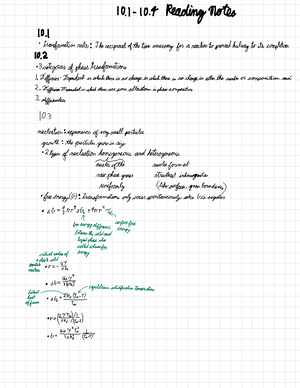 10.1-10.4 Reading Notes
10.1
• Transformation rate: The reciprocal of the time necessary for a reaction to proceed halfway to its completion
10.2
• 3 categories of phase transformations
1. Diffusion- Dependent in which there is no change in either the number or composition and
2. Diffusion Dependent in which there are some alterations in phase composition
3. Diffusionless
10.3
nucleation: appearance of very small particles
growth: the particles grow in size
• 2 types of nucleation homogeneous and heterogeneous
nuclei of the
new phase grows
uniformly
nuclei form at
structural inhomogeneities
(like surfaces, grain boundaries)
• free energy (G): Transformations only occur spontaneously when ΔG is negative
surface free
energy
free energy difference
between the solid and
liquid phase aka
volume free
energy
critical radius of
a stable solid
particle
nucleus
equilibrium solidification temperature
latent
heat
of fusion